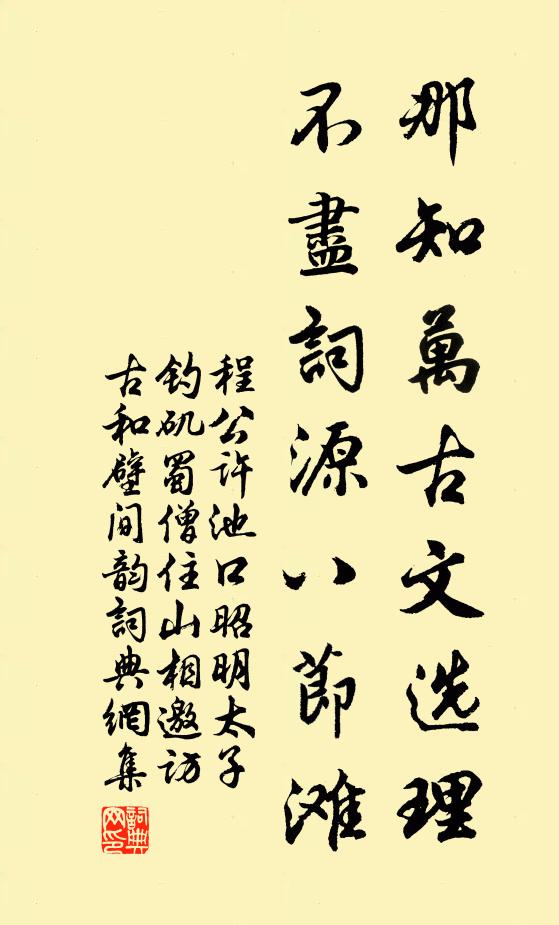 那知萬古文选理
不盡詞源八節滩
程公许池口昭明太子
钓矶蜀僧住山相邀访
古和壁间韵詞典網集
詞典
网印